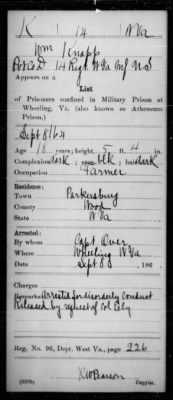 K 14 W Va
Wm Knapp
Pvt Co D, 14 Regt. W Va Inf U S
Appears on a
List
of Prisoners confined in Military Prison at
Wheeling, Va. (also known as Atheneum
Prison.)
Sept 8/64
Age 18 years; height, 5 ft. 4 in.
Complexion dark; eyes blk; hair dark
Occupation Farmer
Residence:
Town Parkersburg
County Wood
State W Va
Arrested:
By whom Capt Over
Where Wheeling W Va
When Sept 8, 186
Charges
Remarks Arrested for disorderly conduct
Released by request of Col
Reg. No. 96, Dept. West Va., page 226
Copyist.